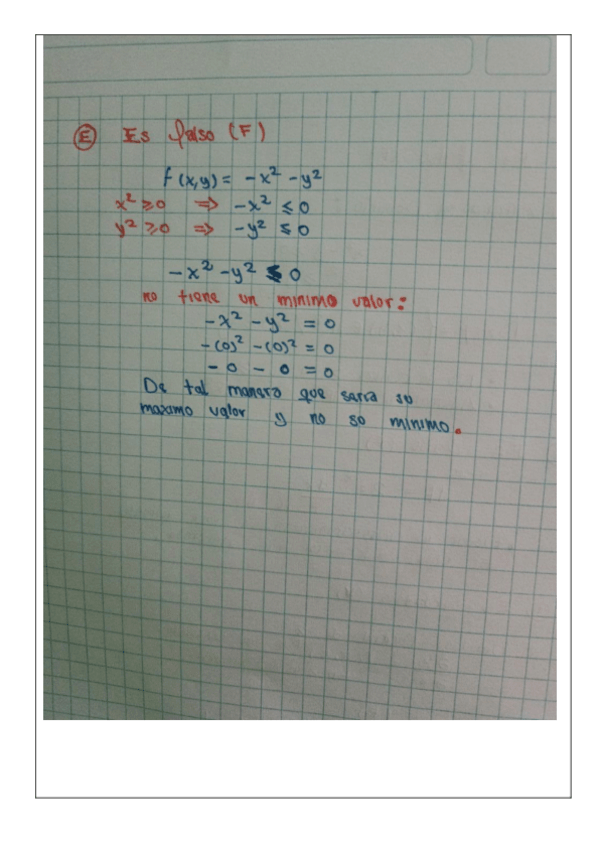 E Es falso (F)
f(x,y) = -x² - y²
x² ≥ 0 ⇒ -x² ≤ 0
y² ≥ 0 ⇒ -y² ≤ 0
-x² - y² ≤ 0
no tiene un minimo valor:
-x² - y² = 0
-(0)² - (0)² = 0
- 0 - 0 = 0
De tal manera que seria su
maximo valor y no so minimo.